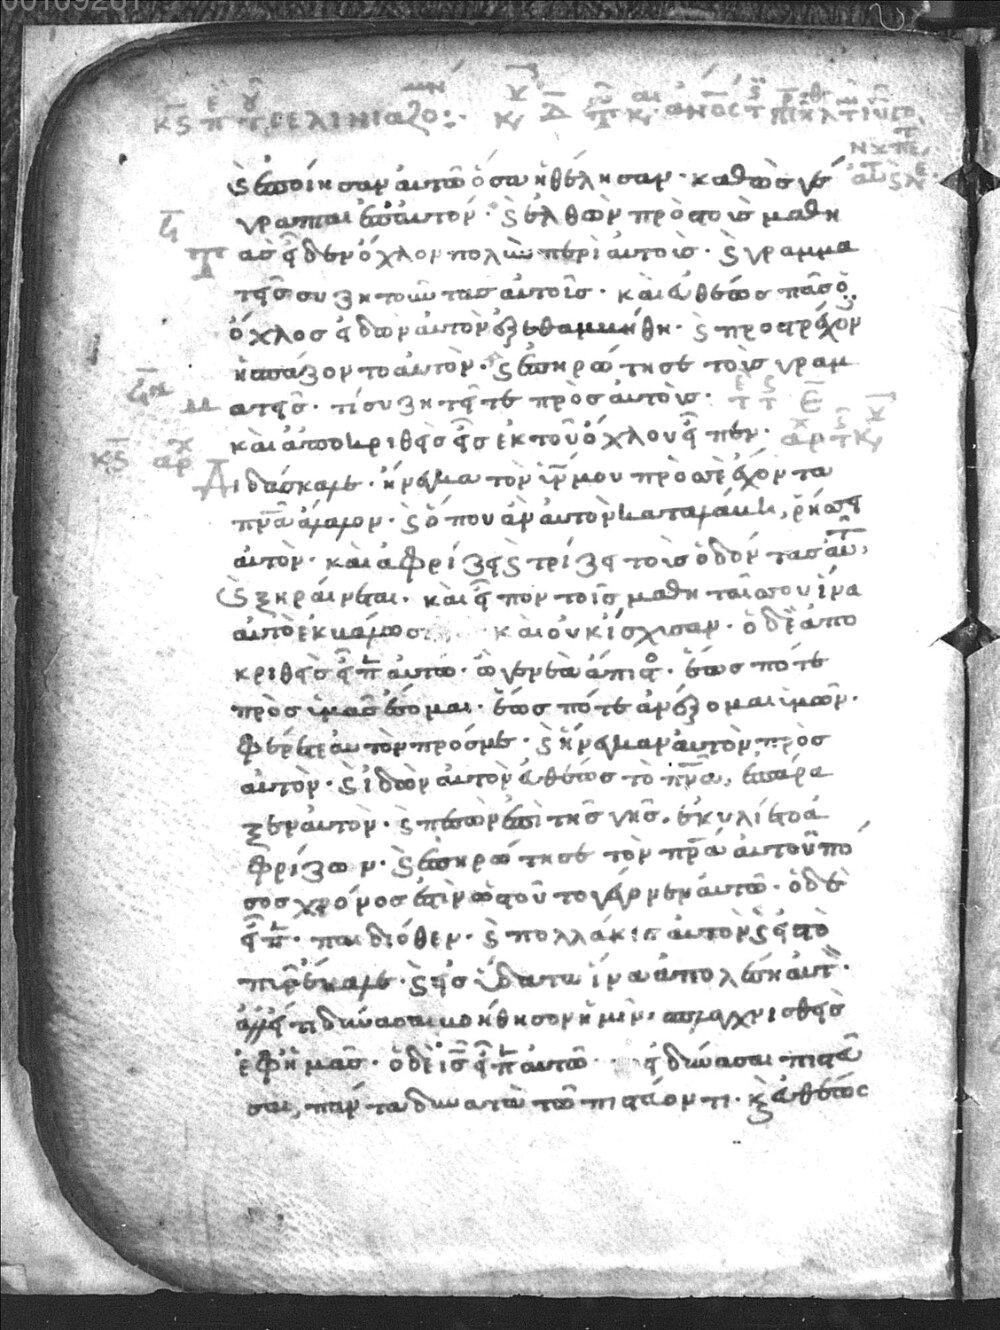 κς περι του σεληνιαζομεν
ϛ εποιησαν αυτω όσα ηθέλησαν · καθως γέ
γραπται επ αυτον · ϛ ελθων πρὸς τοὺς μαθη
τας εἶδεν όχλον πολὺν περὶ αυτους · ϛ γραμμα
τεῖς συζητοῦντας αυτοῖς · καὶ ευθέως πᾶς ὁ
όχλος ειδων αυτον εξεθαμβήθη · ϛ προστρέχον
ησπάζοντο αυτὸν · ϛ επηρώτησε τοὺς γραμ
ματεῖς · τί συζητεῖτε πρὸς αυτοὺς ·
και αποκριθεὶς εἷς εκ τοῦ όχλου εἶπεν ·
Διδάσκαλε · ήνεγκα τὸν υἱόν μου πρὸς σὲ έχοντα
πνα άλαλον · ϛ ὁ που αν αυτὸν καταλάβη, ρήσσει
αυτὸν · και αφρίζει ϛ τρίζει τοὺς ὀδόντας αυτ
ϛ ξηραίνεται · καὶ εἶπον τοῖς μαθηταῖς σου ίνα
αυτὸ εκβάλωσι καὶ ουκ ίσχυσαν · ὁ δὲ απο
κριθεὶς εἶπ αυτω · ω γενεὰ άπιστος · έως πότε
πρὸς υμᾶς έσομαι · έως πότε ανέξομαι ὑμῶν ·
φέρετε αυτὸν πρός με · ϛ ήνεγκαν αυτὸν πρὸς
αυτόν · ϛ ιδὼν αυτὸν ευθέως τὸ πνα, εσπάρα
ξεν αυτον · ϛ πεσὼν επὶ τῆς γῆς, εκυλίετο ἀ
φρίζων · ϛ επηρώτησε τὸν πρα αυτοῦ πό
σος χρόνος εστὶν ὡς τοῦτο γέγονεν αυτῶ · ὁ δὲ
εἶπ · παιδιόθεν · ϛ πολλάκις αυτὸν ϛ εις τὸ
πῦρ έβαλε · ϛ εις ύδατα ίνα απολέση αυτ ·
αλλ εί τι δύνασαι βοήθησον ημῖν, σπλαγχνισθεὶς
εφ ημᾶς · ὁ δὲ ις εἶπ αυτῶ ει δύνασαι πιστεῦ
σαι, πάντα δυνατὰ τῶ πιστεύοντι · ϛ ευθέως